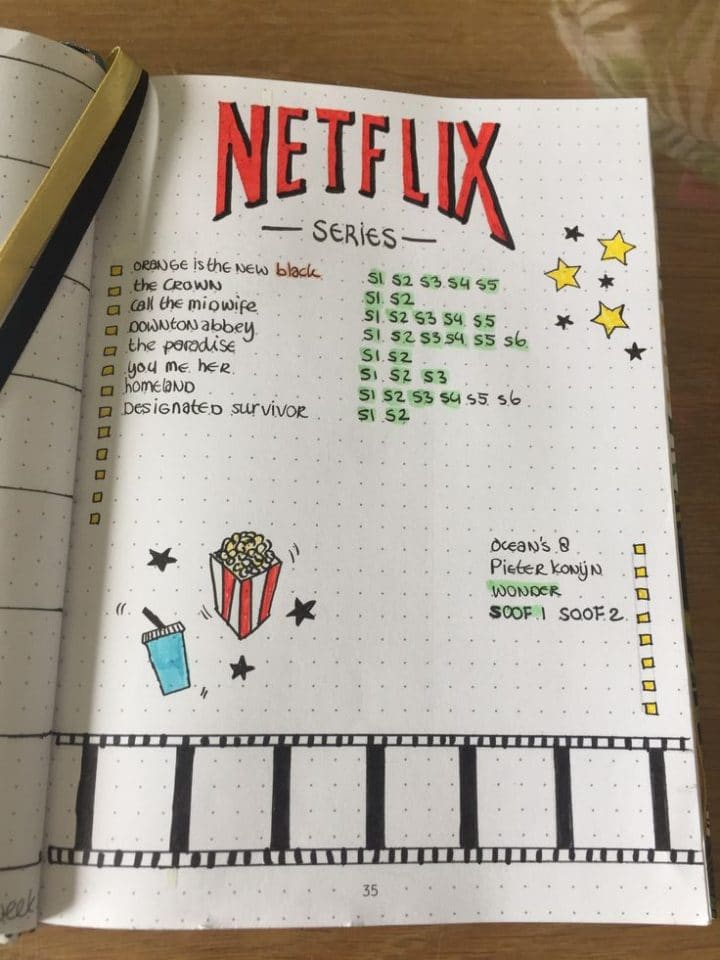 NETFLIX
— SERIES —
ORANGE is the NEW black S1 S2 S3 S4 S5
the CROWN S1 S2
call the midwife S1 S2 S3 S4 S5
DOWNTON abbey S1 S2 S3 S4 S5 S6
the paradise S1 S2
you me her S1 S2 S3
homeLAND S1 S2 S3 S4 S5 S6
DesigNateD survivor S1 S2
OCEAN'S 8
PieTER KONijN
WONDER
SOOF 1 SOOF 2
35
week